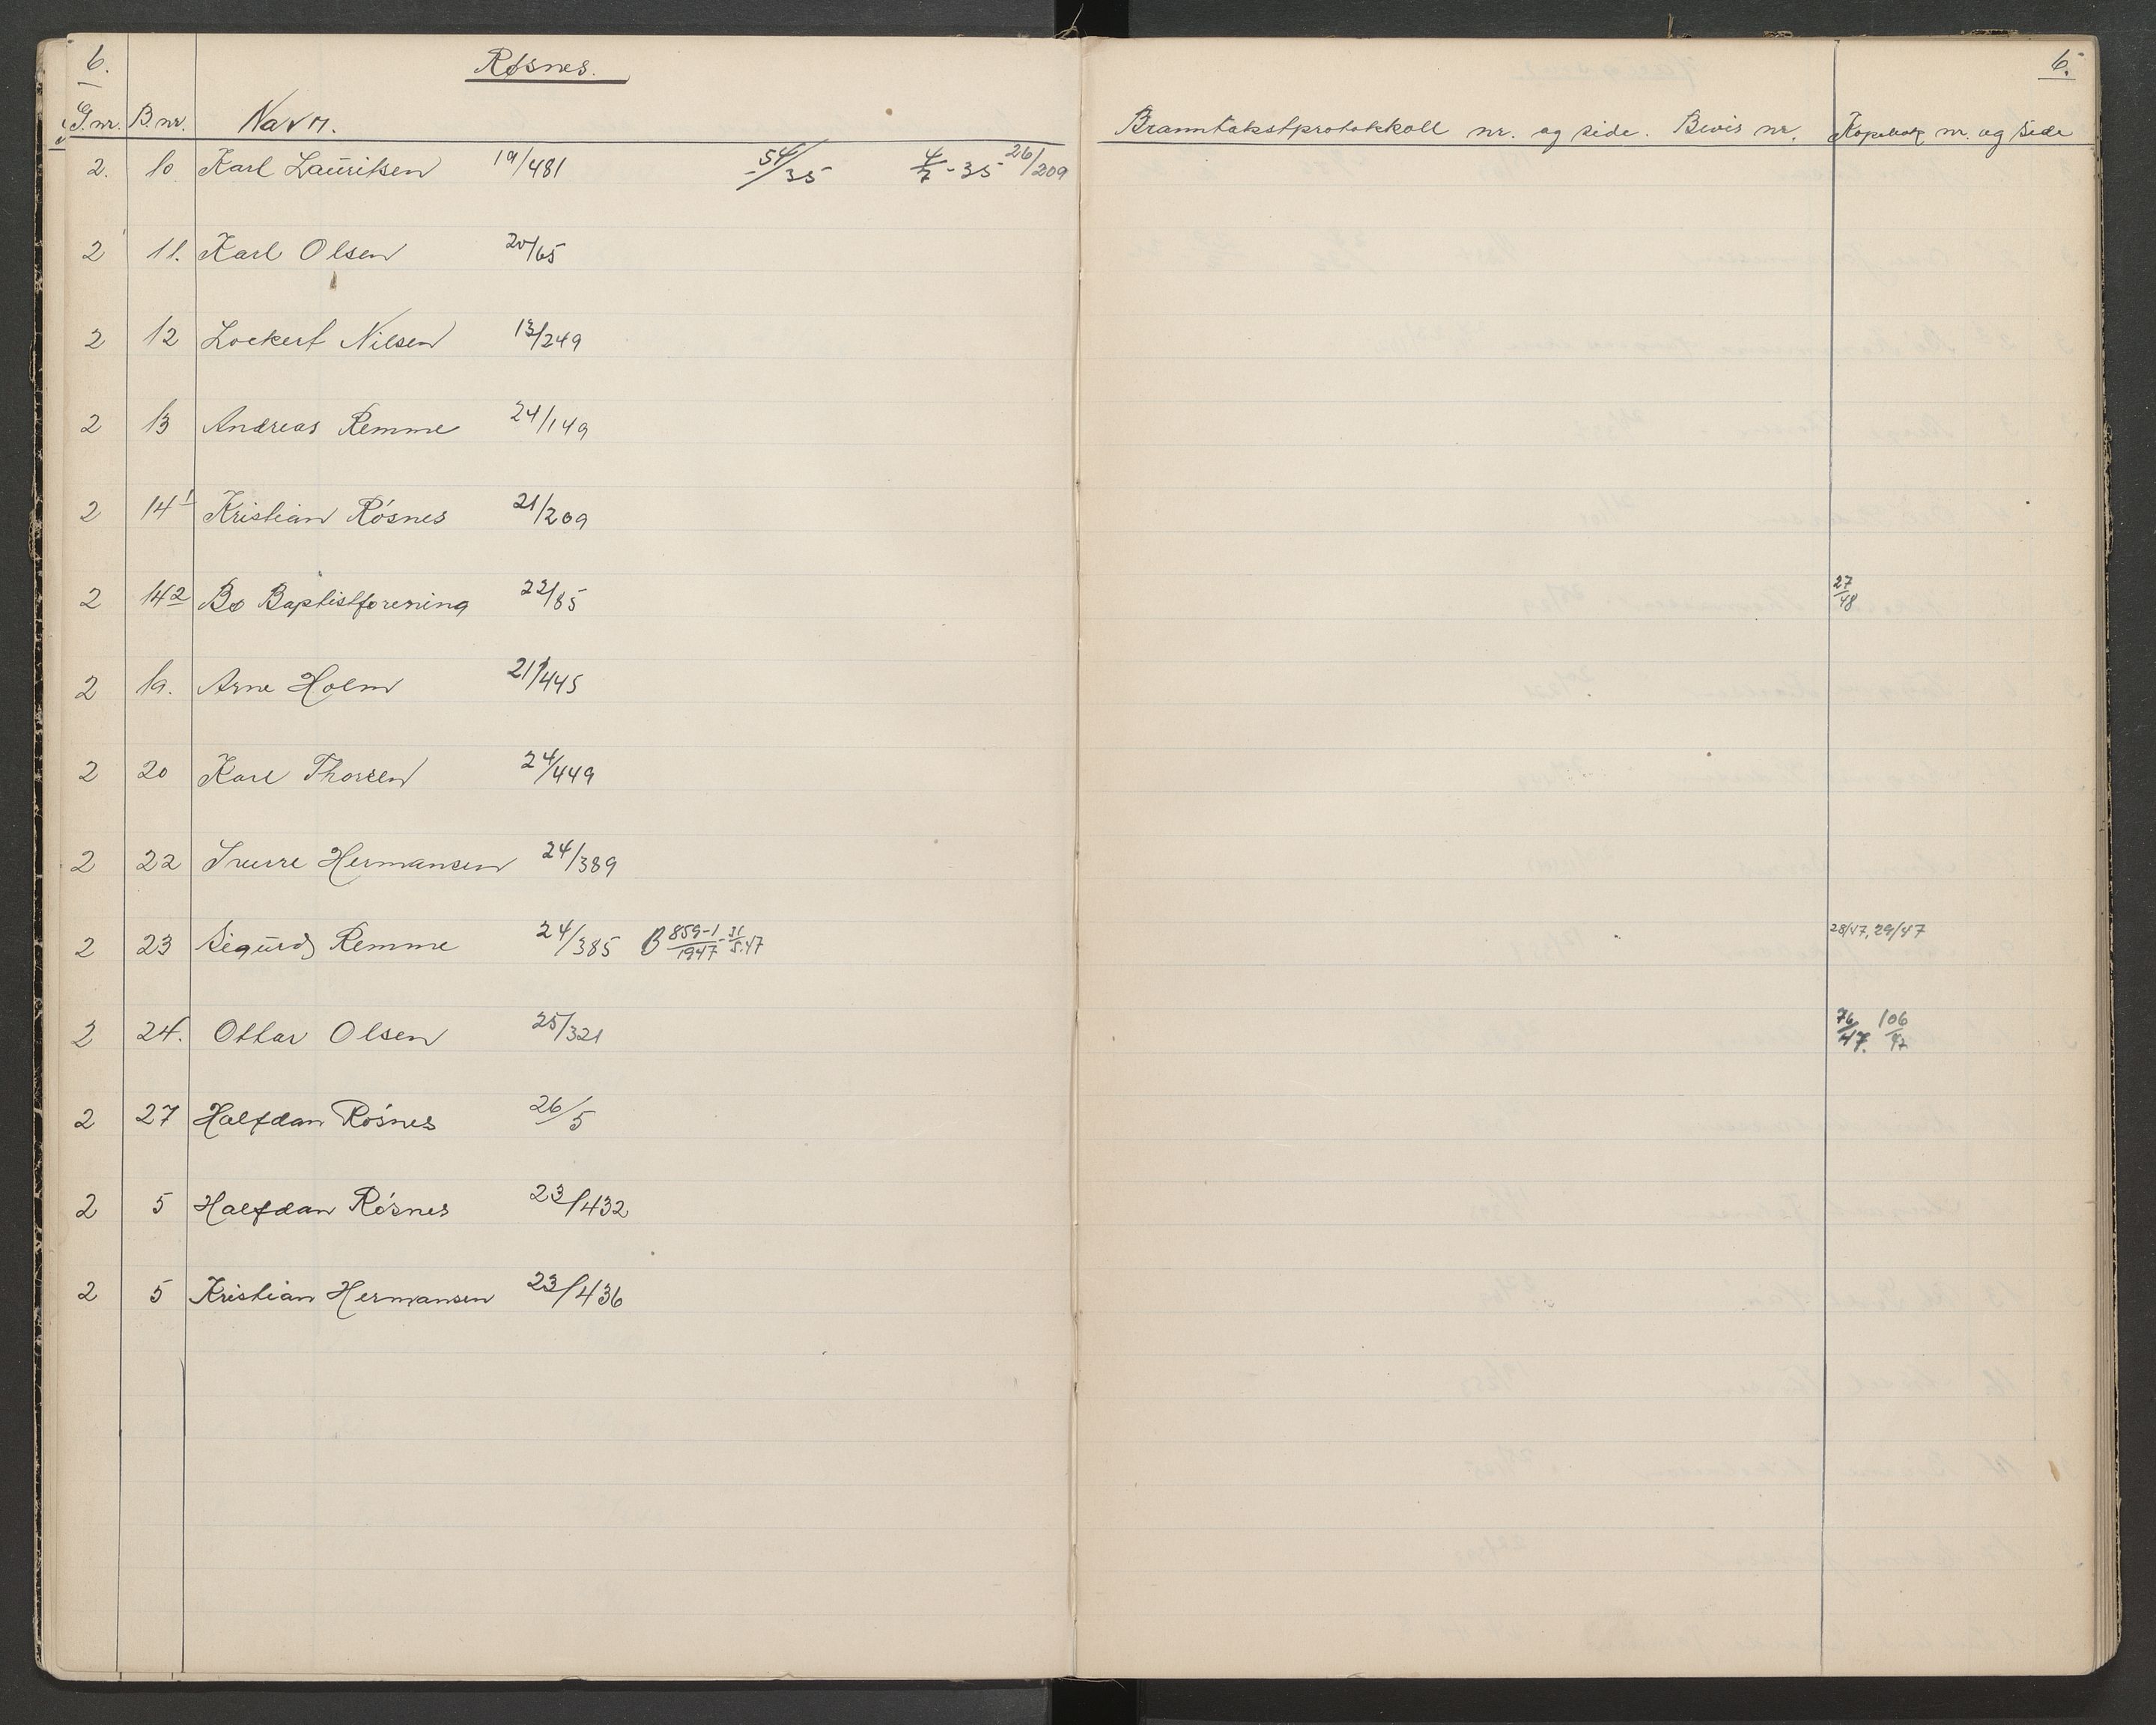 6. Røsnes. 6.
G.nr. B.nr. Navn. Branntakstprotokkoll nr. og side. Bevis nr. Kopibok nr. og side
2. 10 Karl Lauritsen 19/481 54/35 4/7-35 26/209
2 11. Karl Olsen 20/65
2 12 Lockert Nilsen 13/249
2 13 Andreas Remme 24/149
2 14¹ Kristian Røsnes 21/209
2 14² Bø Baptistforening 22/85 27/48
2 19. Arne Holm 21/445
2 20 Karl Thorsen 24/449
2 22 Sverre Hermansen 24/389
2 23 Sigurd Remme 24/385 B 859-1/1947 - 31/5.47 28/47, 29/47
2 24. Ottar Olsen 25/321 76/47. 106/47
2 27 Halfdan Røsnes 26/5
2 5 Halfdan Røsnes 23/432
2 5 Kristian Hermansen 23/436